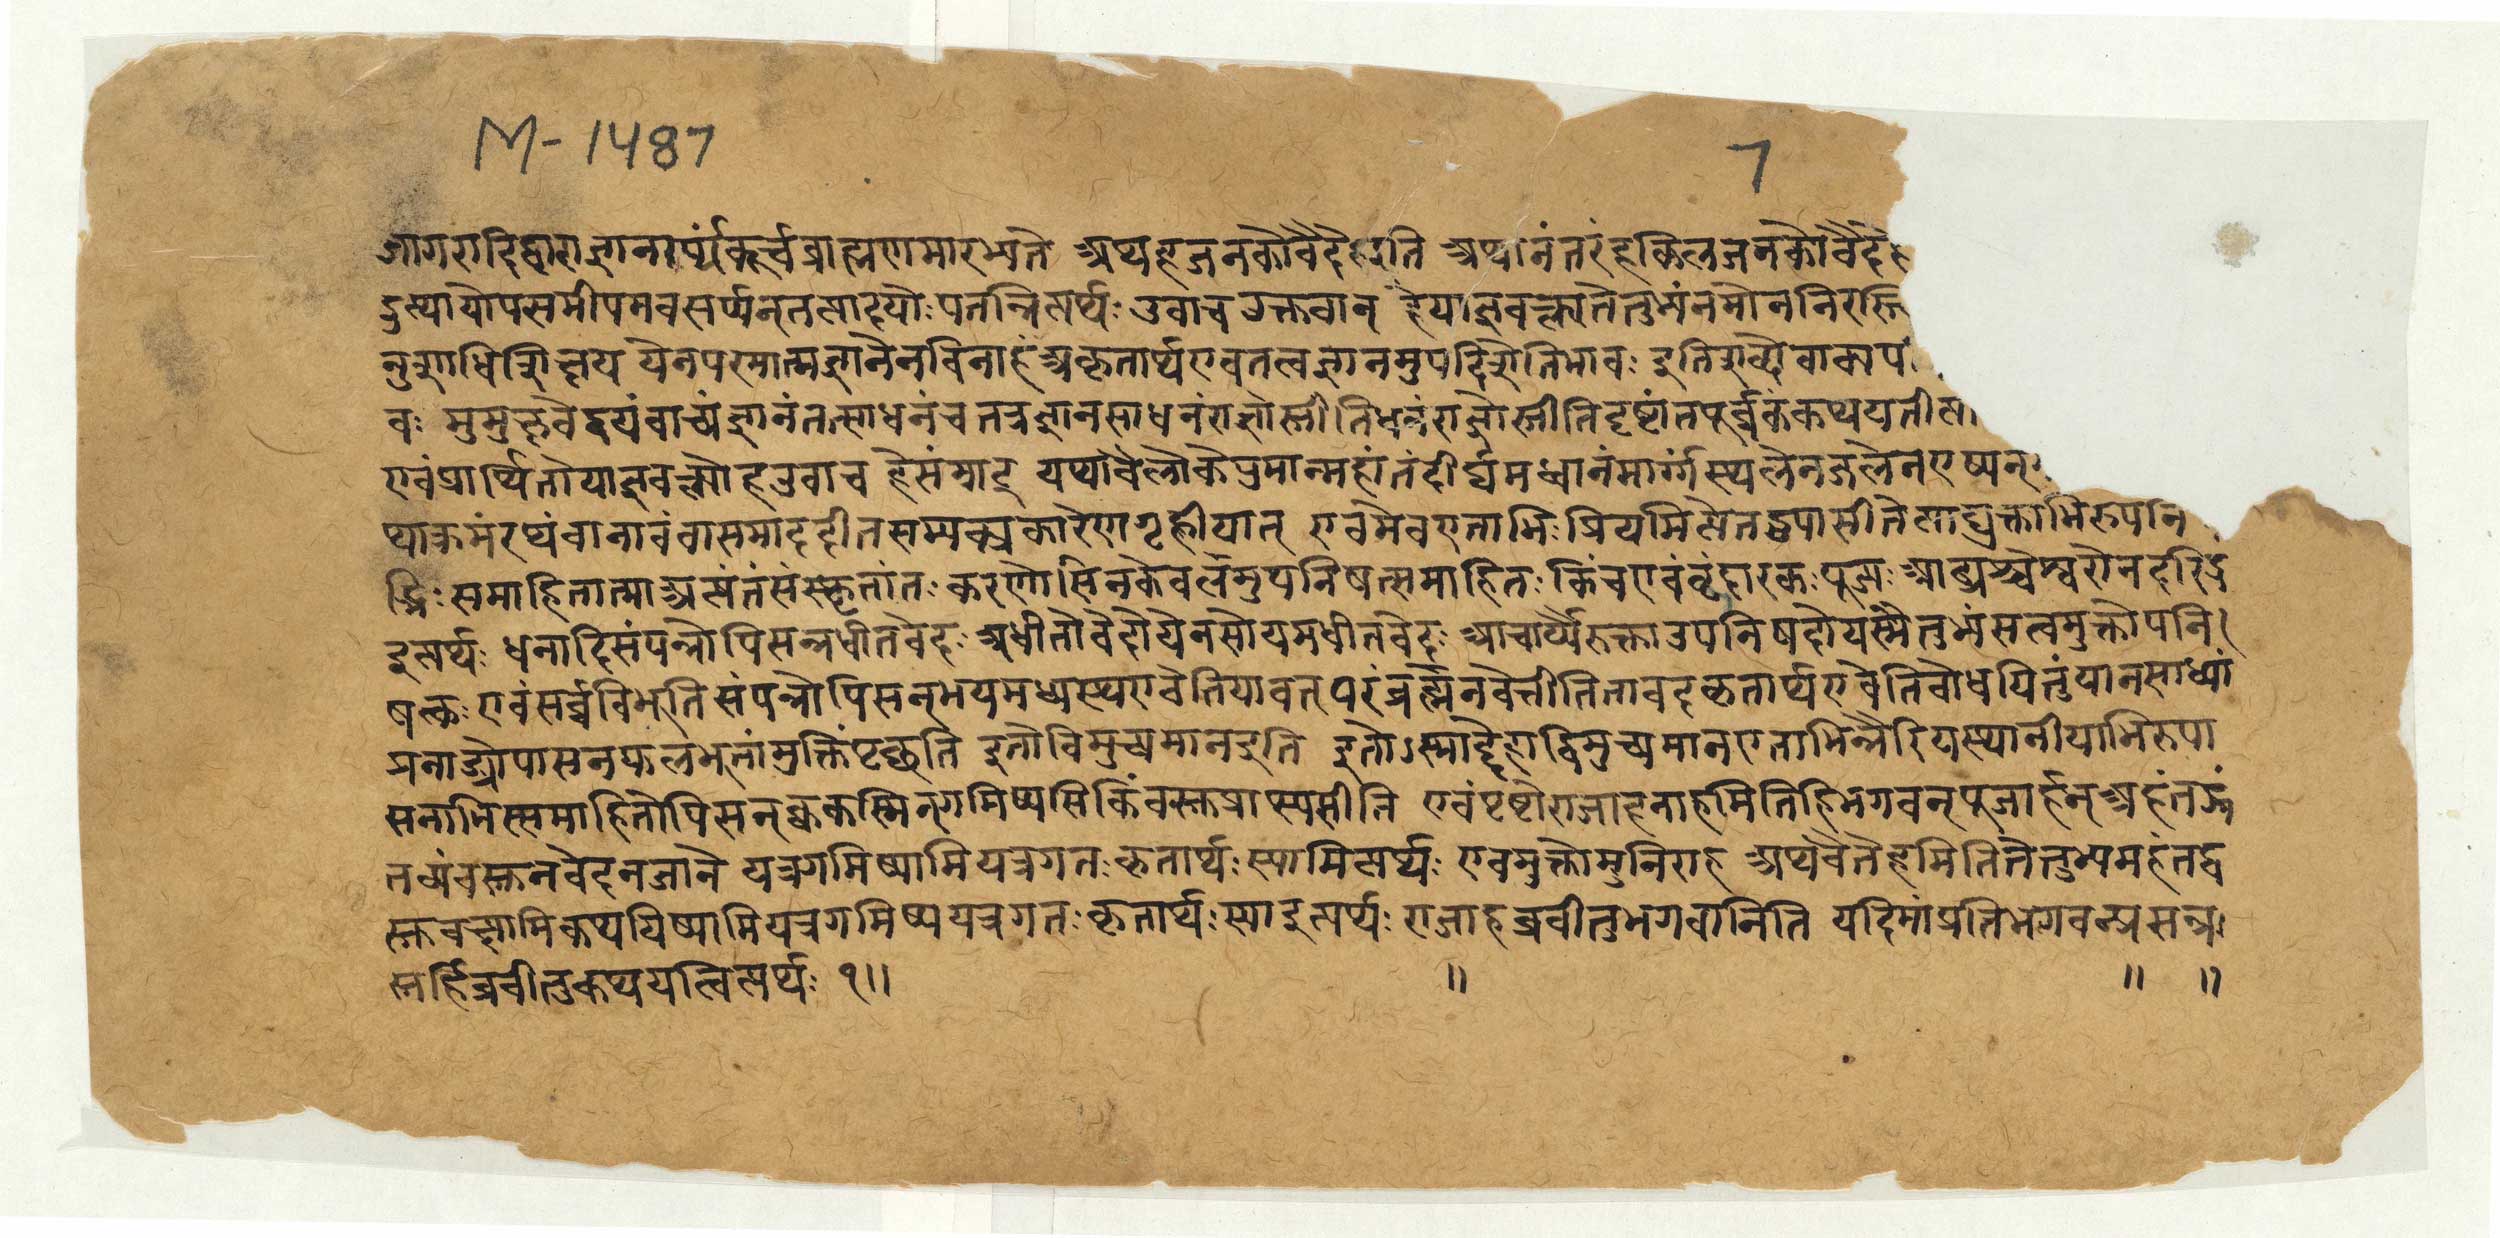 M-1487
7
जागरादिद्वाराज्ञानार्थंकूर्चब्राह्मणमारभ्यते अथहजनकोवैदेहइति अथानंतरंहकिलजनकोवैदेह
दुत्थायोपसमीपमवसर्प्पन्तत्पादयोःपतन्नित्यर्थः उवाचउक्तवान् हेयाज्ञवल्क्यतेतुभ्यंनमोन
शाधिशिक्षय येनपरमात्मज्ञानेनविनाहंअकृतार्थएवतत्वज्ञानमुपदिशेतिभावः इतिशब्दो
वः मुमुक्षवेद्वयंवाच्यंज्ञानंतत्साधनंच तत्रज्ञानसाधनंराज्ञोस्तीतिदृष्टांतपूर्व्वकंकथयती
एवंप्रार्थितोयाज्ञवल्क्योहउवाच हेसंम्राट् यथावैलोकेपुमान्महांतंदीर्घमध्वानंमार्ग्गंस्थलेनजलेनएष्यन्
रथंवानावंवासमाददीतसम्यक्प्रकारेणगृह्णीयात् एवमेवएताभिः प्रियमित्येतदुपासीतेत्याद्युक्ताभिरुपनि
द्भिः समाहितात्माअत्यंतंसंस्कृतांतः करणोसिनकेवलमुपनिषत्समाहितः किंचएवंवृंदारकः पूज्यः आढ्यश्चेश्वरोनदरिद्र
इत्यर्थः धनादिसंपन्नोपिसन्नधीतवेदः अधीतोवेदोयेनसोयमधीतवेदः आचार्य्यैरुक्ताउपनिषदोयस्मैतुभ्यंसत्वमुक्तोपनि
षत्कः एवंसर्व्वविभूतिसंपन्नोपिसन्भयमध्यस्थएवेतियावत्परंब्रह्मनवेत्तीतितावदकृतार्थएवेतिबोधयितुंयानसाध्यां
इतोविमुच्यमानइति इतोऽस्माद्देहाद्विमुच्यमानएताभिर्नौरथस्थानीयाभिरुपा
सनाभिस्समाहितोपिसन्क्वकस्मिन्गमिष्यसिकिंवस्तुप्राप्स्यसीति एवंपृष्टोराजाहनाहमितिहेभगवन्पूजार्हन्अहंतद्गं
तव्यंवस्तुनवेदनजाने यत्रगमिष्यामियत्रगतः कृतार्थः स्यामित्यर्थः एवमुक्तोमुनिराह अथवैतेहमितितेतुभ्यमहंतद्व
स्तुवक्ष्यामिकथयिष्यामियत्रगमिष्यययत्रगतः कृतार्थः स्याइत्यर्थः राजाहब्रवीतुभगवानिति यदिमांप्रतिभगवन्प्रसन्न
स्तर्हिब्रवीतुकथयत्वित्यर्थः १॥ ॥ ॥ ॥